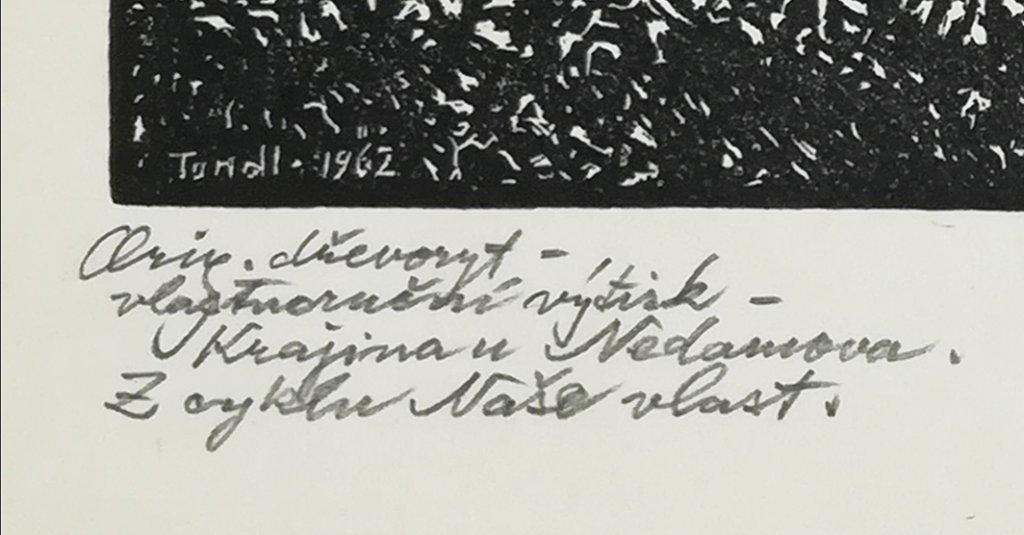 Tondl · 1962
Orig. dřevoryt -
vlastnoruční výtisk -
Krajina u Nedamova.
Z cyklu Naše vlast.